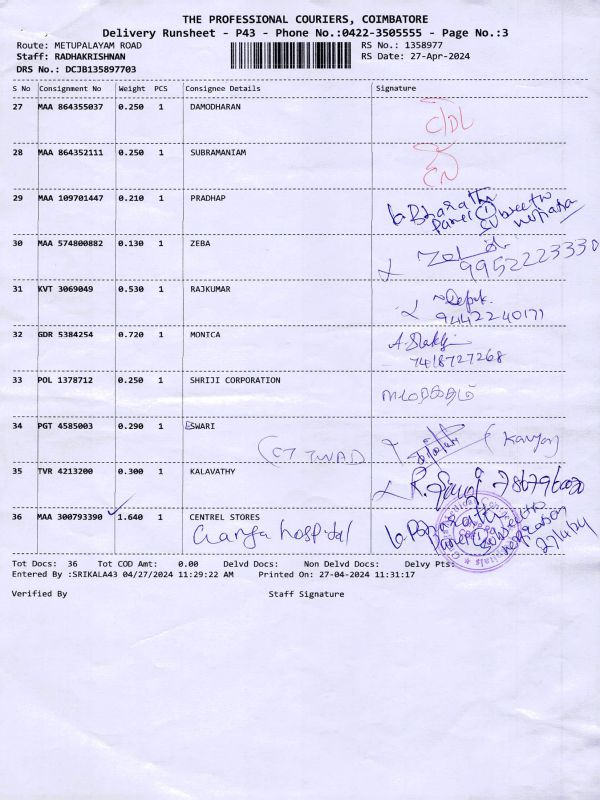 THE PROFESSIONAL COURIERS, COIMBATORE
Delivery Runsheet - P43 - Phone No.:0422-3505555 - Page No.:3
Route: METUPALAYAM ROAD RS No.: 1358977
Staff: RADHAKRISHNAN RS Date: 27-Apr-2024
DRS No.: DCJB135897703
S No Consignment No Weight PCS Consignee Details Signature
27 MAA 864355037 0.250 1 DAMODHARAN
28 MAA 864352111 0.250 1 SUBRAMANIAM
29 MAA 109701447 0.210 1 PRADHAP
30 MAA 574800882 0.130 1 ZEBA
9952223330
31 KVT 3069049 0.530 1 RAJKUMAR
Deepak.
9442240171
32 GDR 5384254 0.720 1 MONICA
7418727268
33 POL 1378712 0.250 1 SHRIJI CORPORATION
34 PGT 4585003 0.290 1 ESWARI
35 TVR 4213200 0.300 1 KALAVATHY
36 MAA 300793390 1.640 1 CENTREL STORES
Ganga hospital
Tot Docs: 36 Tot COD Amt: 0.00 Delvd Docs: Non Delvd Docs: Delvy Pts:
Entered By :SRIKALA43 04/27/2024 11:29:22 AM Printed On: 27-04-2024 11:31:17
Verified By Staff Signature